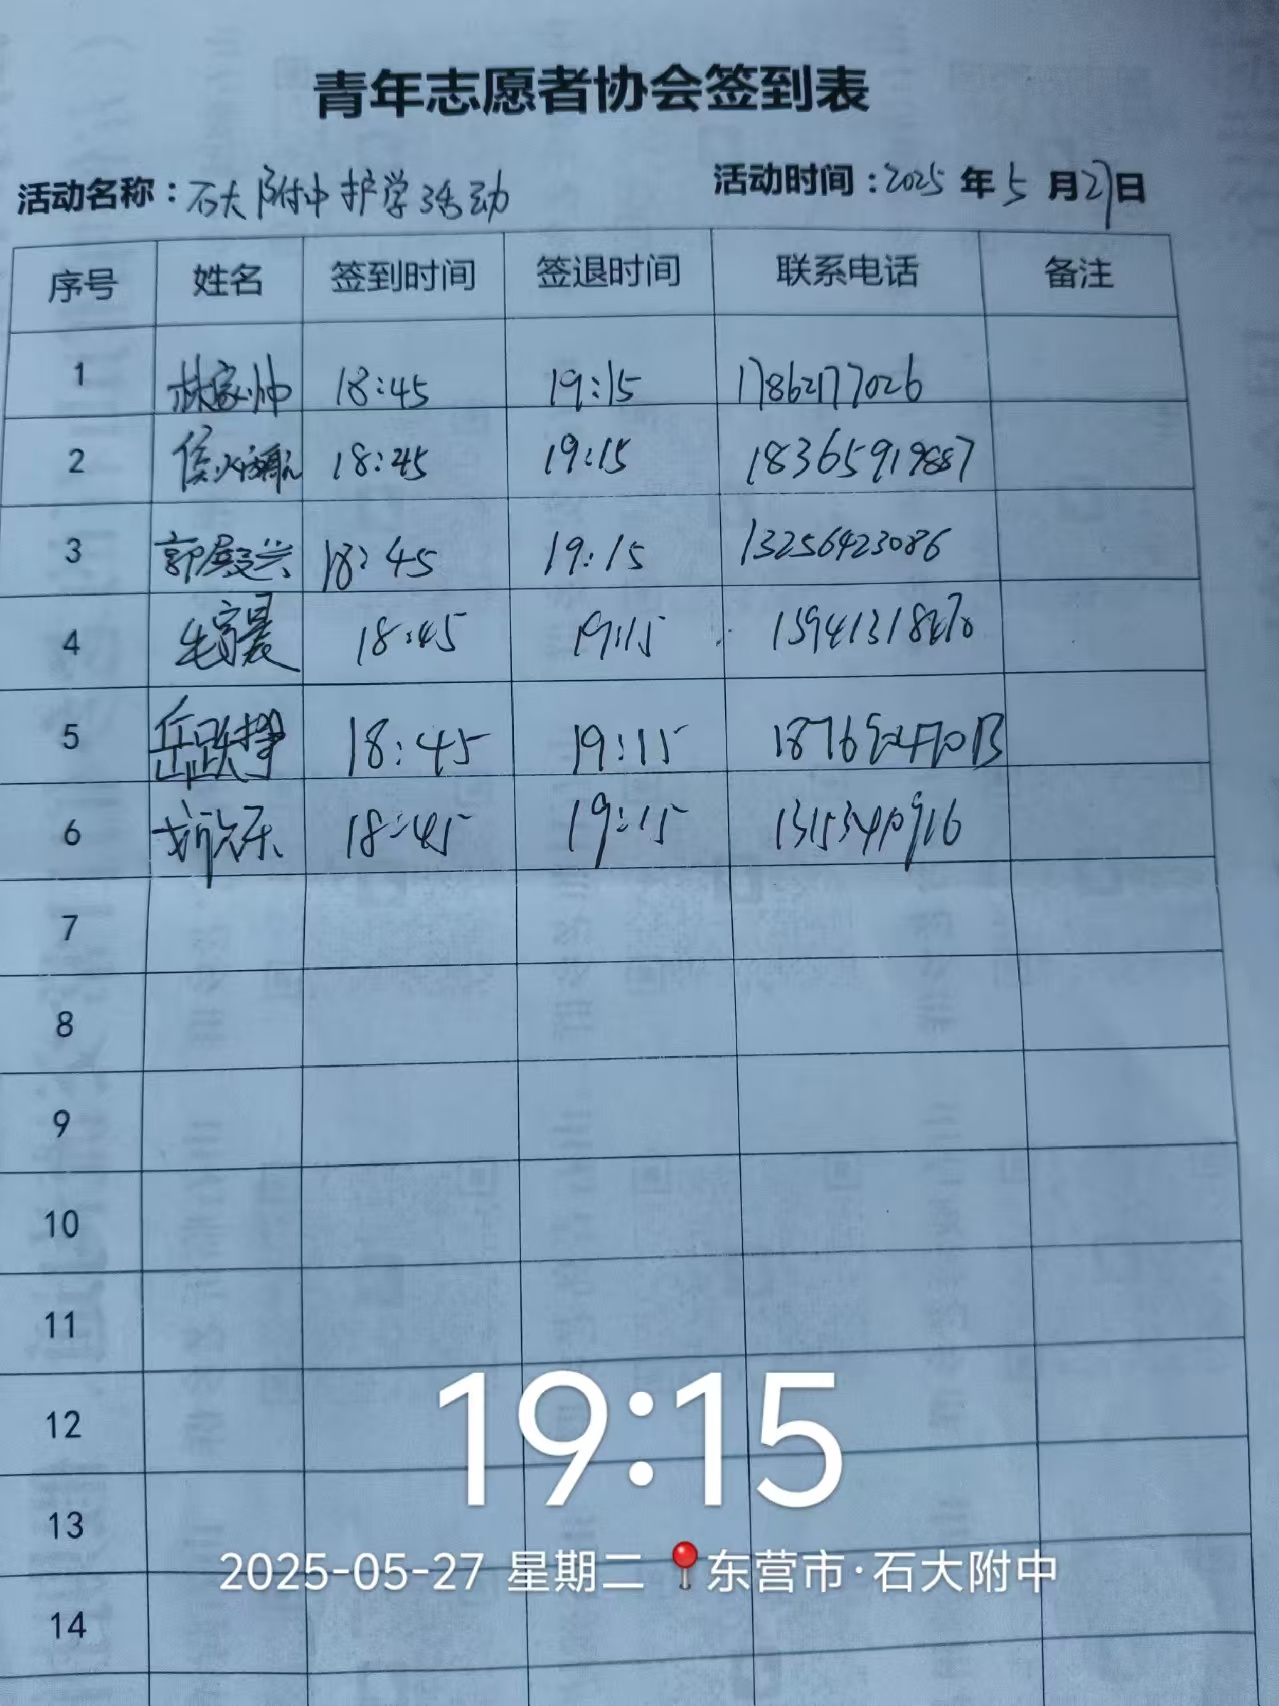 青年志愿者协会签到表
活动名称：石大附中护学活动 活动时间：2025年5月27日
序号 姓名 签到时间 签退时间 联系电话 备注
1 林家帅 18:45 19:15 17862177026
2 侯 18:45 19:15 18365919887
3 郭殿兴 18:45 19:15 13256423086
4 18:45 19:15
5 岳跃 18:45 19:15
6 18:45 19:15
7
8
9
10
11
12
13
14
19:15
2025-05-27 星期二 东营市·石大附中